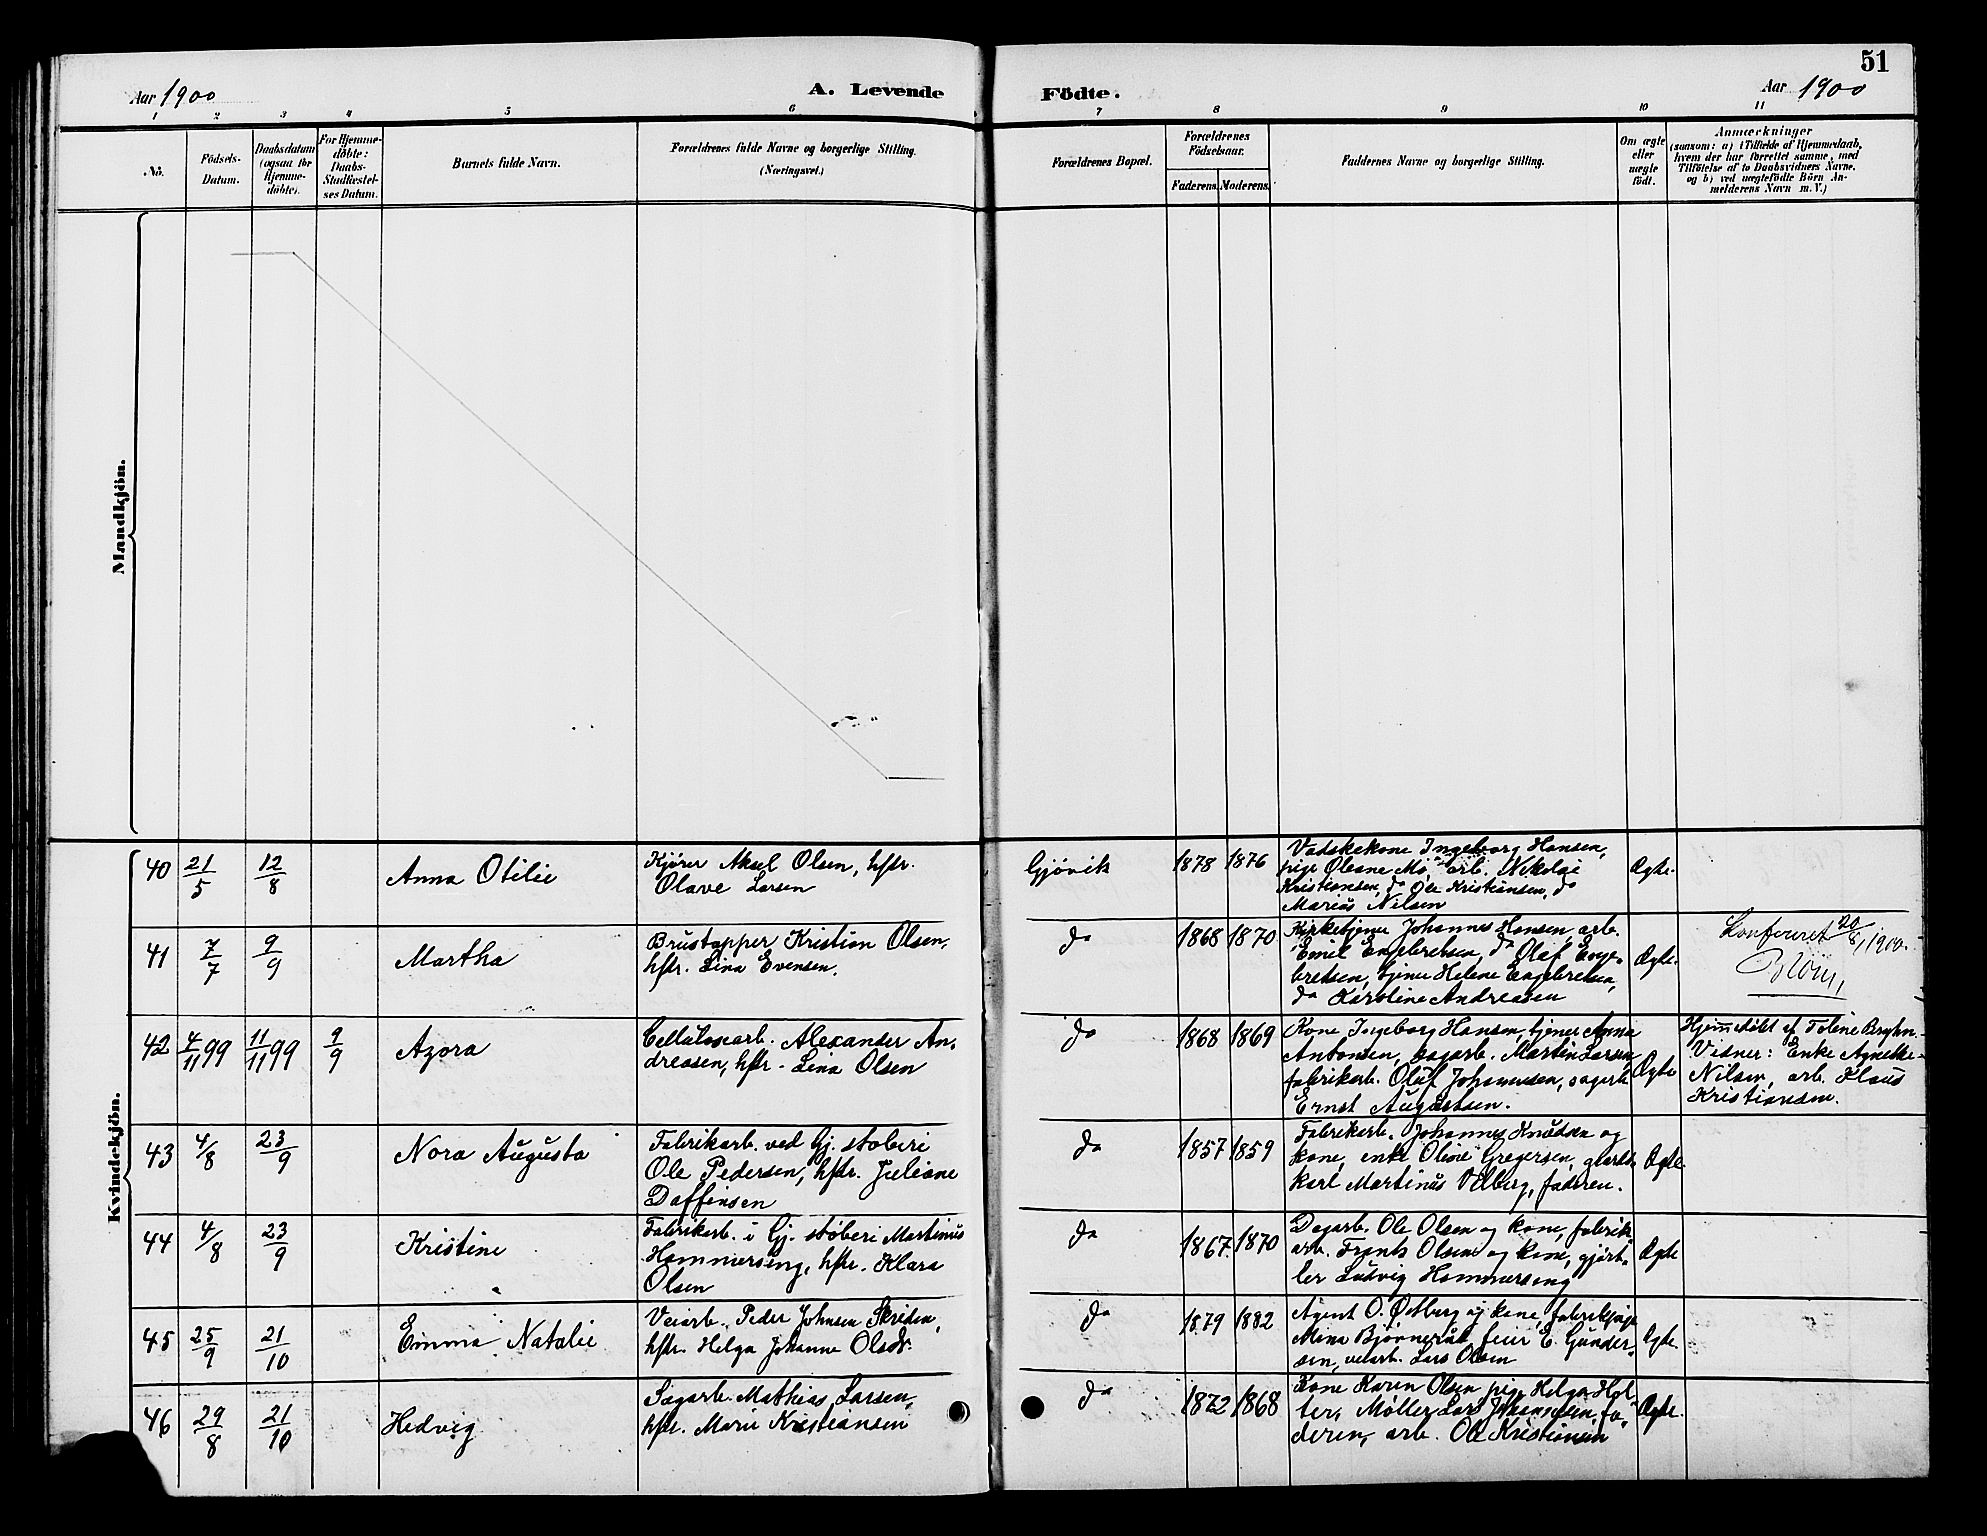 51
Aar 1900
A. Levende
Födte.
Aar 1900
1 2 3 4 5 6 7 8 9 10 11
No.
Födsels-
Datum.
Daabsdatum
(ogsaa for
Hjemme-
döbte).
For Hjemme-
döbte:
Daabs-
Stadfæstel-
ses Datum.
Barnets fulde Navn.
Forældrenes fulde Navne og borgerlige Stilling.
(Næringsvei.)
Forældrenes Bopæl.
Forældrenes
Födselsaar.
Faderens. Moderens.
Faddernes Navne og borgerlige Stilling.
Om ægte
eller
uægte
födt.
Anmærkninger
(saasom: a) i Tilfælde af Hjemmedaab,
hvem der har forrettet samme, med
Tilföielse af to Daabsvidners Navne,
og b) ved uægtefödte Börn An-
melderens Navn m. V.)
Mandkjön.
Kvindekjön.
40
21/5
12/8
Anna Otilie
Kjører Aksel Olsen, hstr.
Olave Larsen
Gjövik
1878
1876
Vadskekone Ingeborg Hansen,
pige Oleane Mo, arb. Nikolai
Kristiansen, do Ole Kristiansen, do
Marius Nilsen
Ægte.
41
7/7
9/9
Martha
Brustapper Kristian Olsen,
hstr. Lina Evensen.
do
1868
1870
Kirketjener Johannes Hansen, arb.
Emil Engebretsen, do Olaf Enge-
bretsen, tjener Helene Engebretsen,
do Karoline Andreasen
Ægte.
1900.
42
4/11 99
11/11 99
9/9
Azora
Cellulosearb. Alexander An-
dreasen, hstr. Lina Olsen
do
1868
1869
Kone Ingeborg Hansen, tjener Anna
Antonsen, sagarb. Martin Larsen,
fabrikarb. Oluf Johannesen, sagarb.
Ernst Augustsen.
Ægte
Hjemmedöbt af Toline Bryhn.
Vidner: Enke Agnethe
Nilsen, arb. Klaus
Kristiansen.
43
4/8
23/9
Nora Augusta
Fabrikarb. ved Gj. støberi
Ole Pedersen, hstr. Juliane
Daffinsen
do
1857
1859
Fabrikarb. Johannes Knudsen og
kone, enke Oline Gregersen, gaards-
karl Martinus Velberg, faderen.
Ægte.
44
4/8
23/9
Kristine
Fabrikarb. i Gj. støberi Martinus
Hammerseng, hstr. Klara
Olsen
do
1867.
1870
Dagarb. Ole Olsen og kone, fabrik-
arb. Frants Olsen og kone, gjørt-
ler Ludvig Hammerseng
Ægte
45
25/9
21/10
Emma Natalie
Veiarb. Peder Johnsen Skriden,
hstr. Helga Johanne Olsdr.
do
1879
1882
Agent O. Østberg og kone, fabrikpige
Mina Bjørnerud, feier E. Gunder-
sen, veiarb. Lars Olsen
Ægte.
46
29/8
21/10
Hedvig
Sagarb. Mathias Larsen,
hstr. Marie Kristiansen
do
1872
1868
Kone Karen Olsen, pige Helga Hol-
ter, Møller Lars Johannesen, fa-
deren, arb. Ole Kristiansen
Ægte.